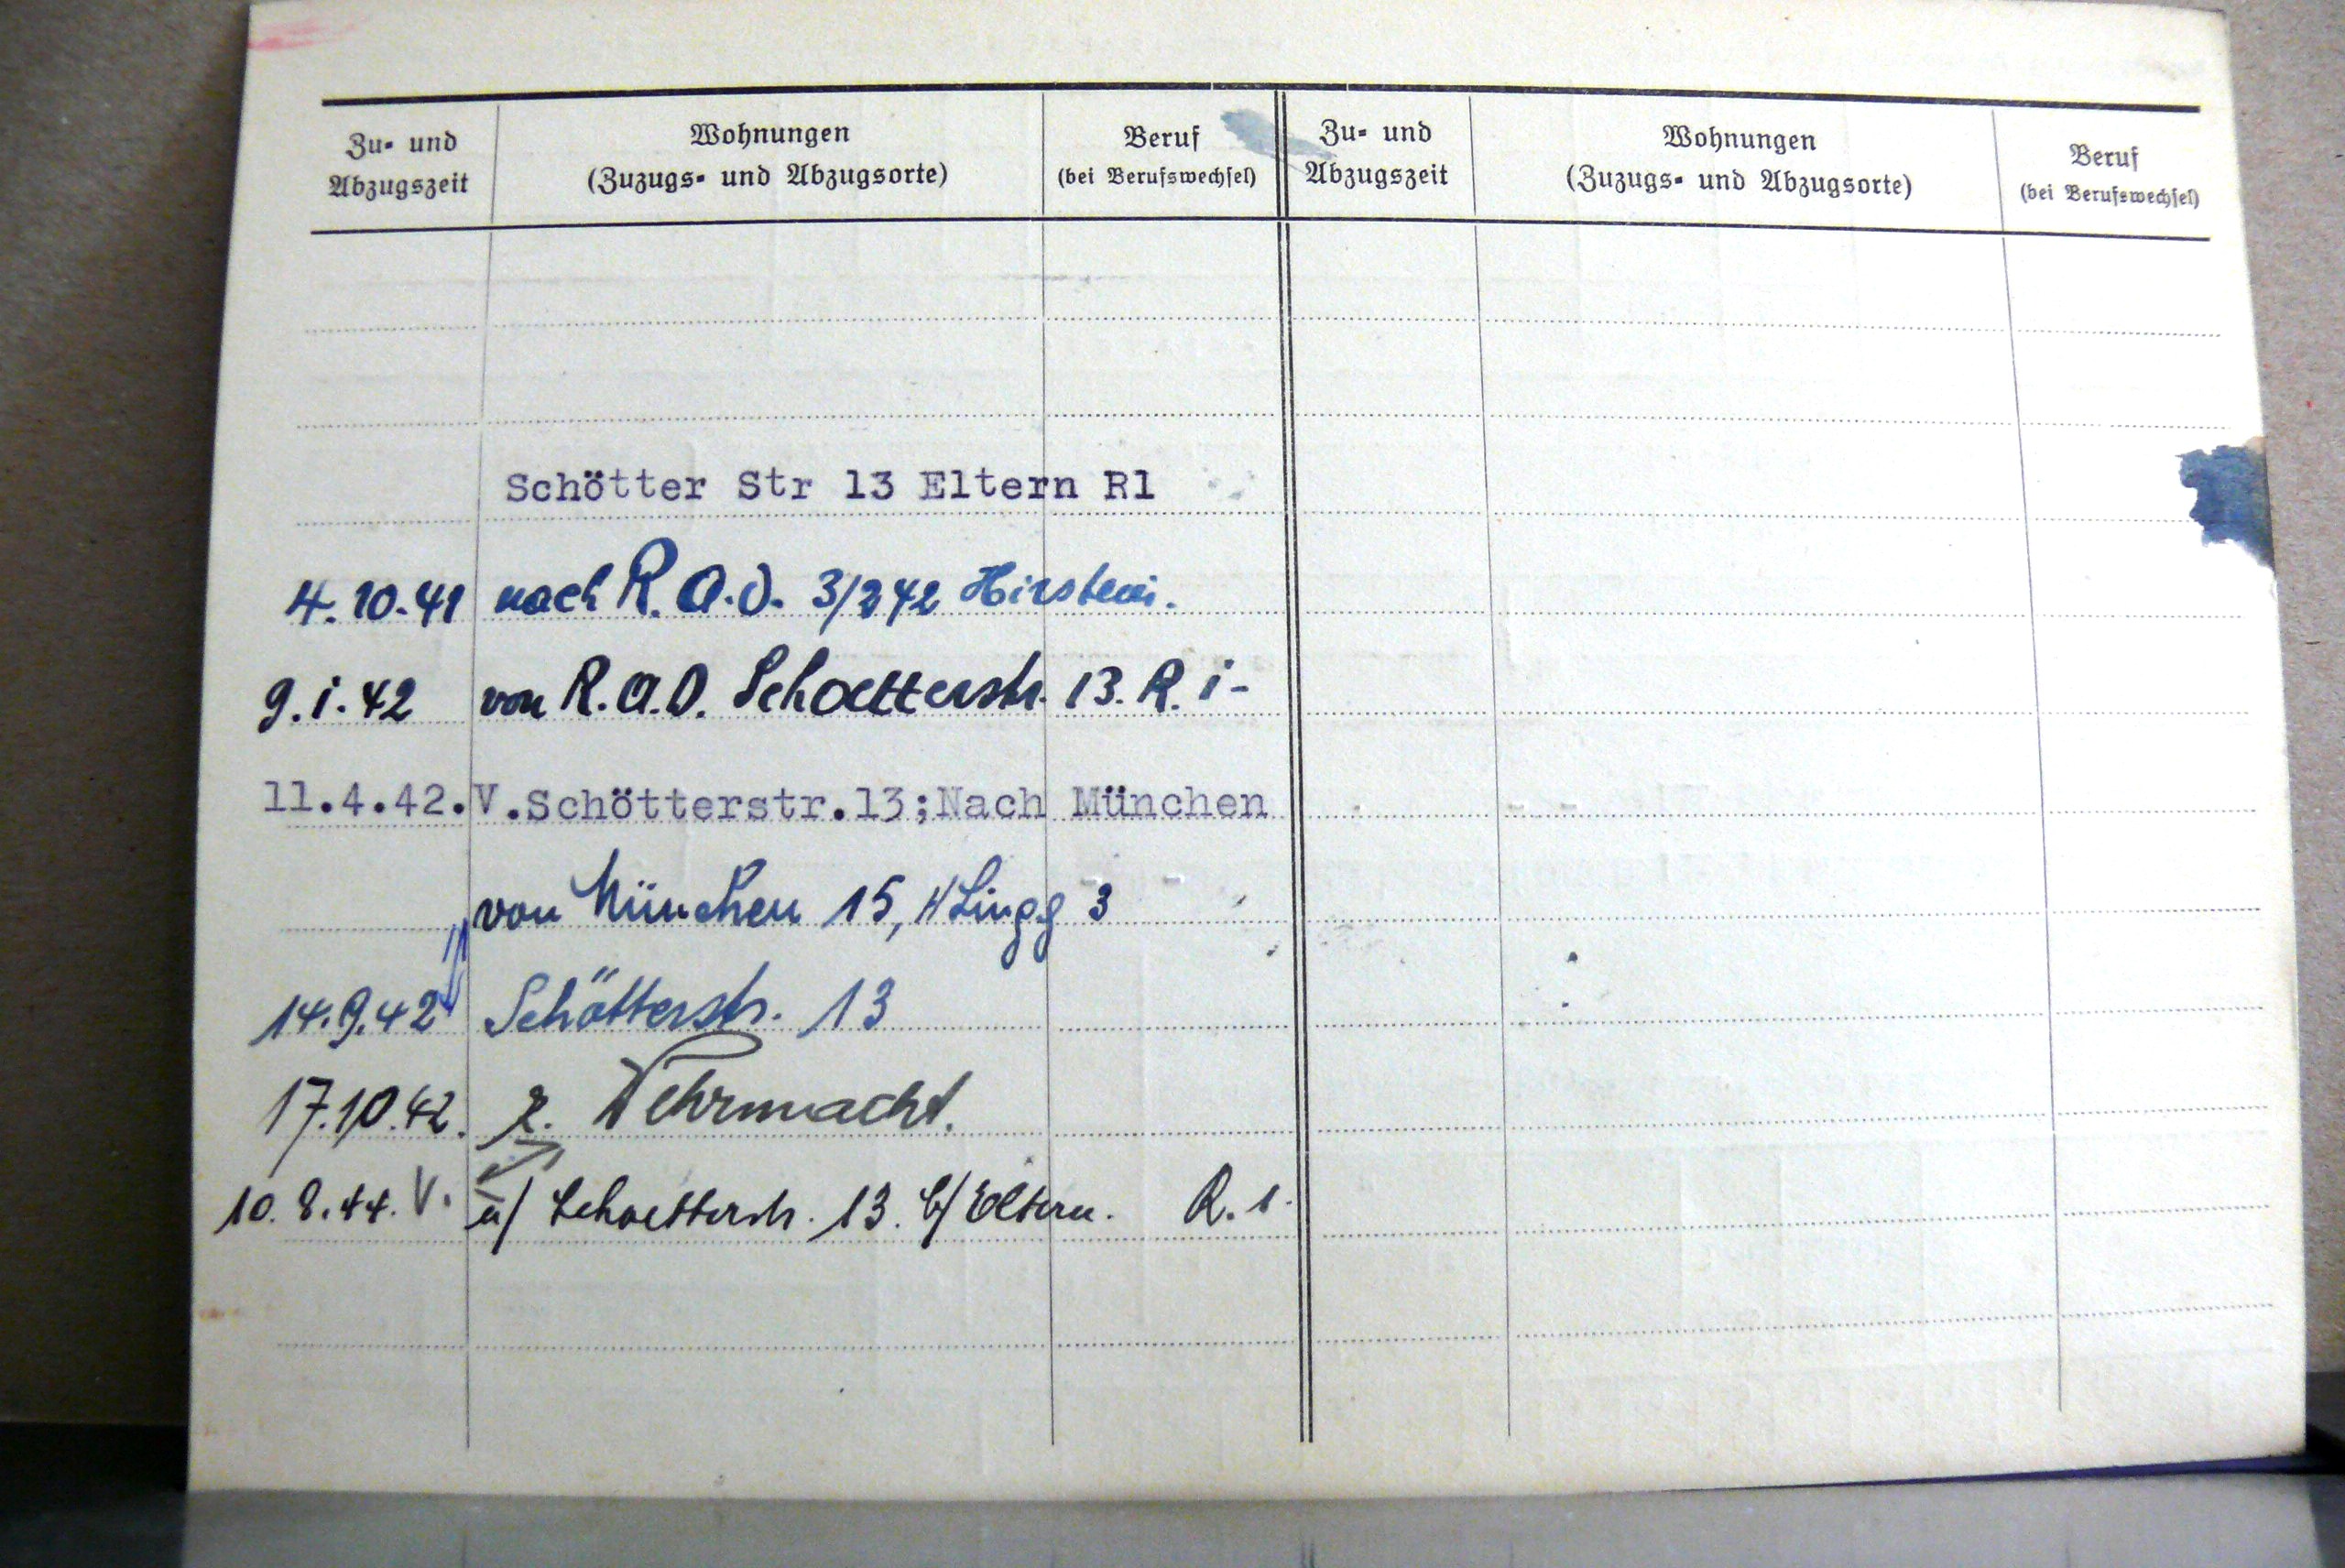 Zu- und Abzugszeit
Wohnungen
(Zuzugs- und Abzugsorte)
Beruf
(bei Berufswechsel)
Zu- und Abzugszeit
Wohnungen
(Zuzugs- und Abzugsorte)
Beruf
(bei Berufswechsel)
Schötter Str 13 Eltern R1
4.10.41 nach R.A.D. 3/242 Hirstein.
9.i.42 von R.A.D. Schoetterstr. 13. R. i-
11.4.42. V.Schötterstr.13;Nach München
von München 15, H Lingg 3
14.9.42 Schötterstr. 13
17.10.42. z. Wehrmacht.
10.8.44. V. Schoetterstr. 13. b/ Eltern. R. 1.